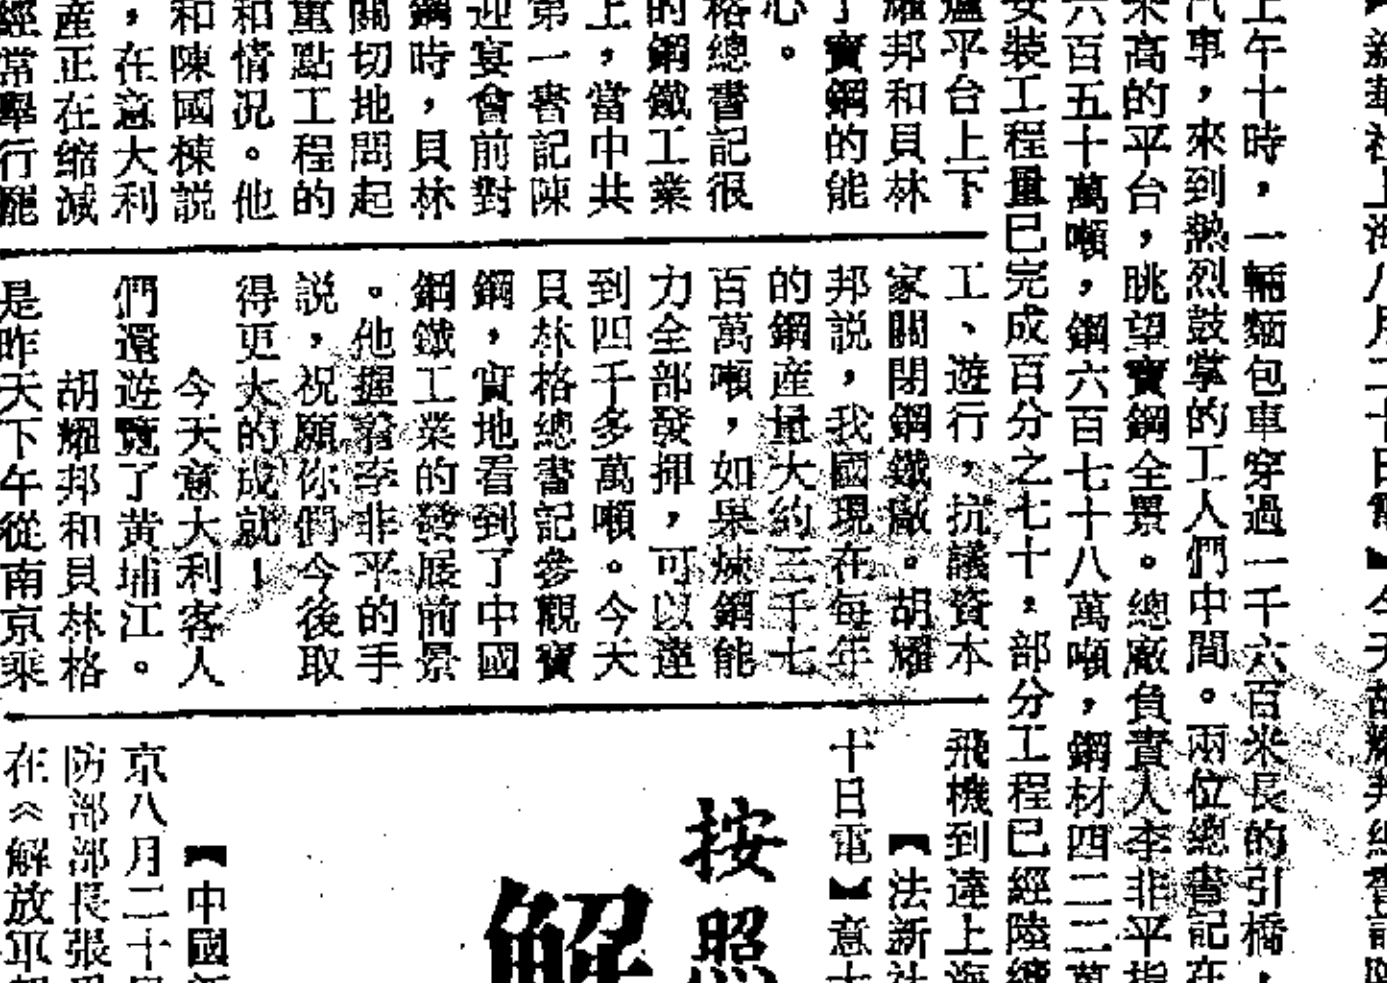 新華社上海八月二十日電】今天胡耀邦總書記
上午十時，一輛麵包車穿過一千六百米長的引橋，
汽車，來到熱烈鼓掌的工人們中間。兩位總書記在
米高的平台，眺望寶鋼全景。總廠負責人李非平指
六百五十萬噸，鋼六百七十八萬噸，鋼材四二二萬
安裝工程量已完成百分之七十，部分工程已經陸續
爐平台上下
耀邦和貝林
了寶鋼的能
心。
格總書記很
的鋼鐵工業
上，當中共
第一書記陳
迎宴會前對
鋼時，貝林
關切地問起
重點工程的
和情況。他
和陳國棟説
，在意大利
産正在缩減
經常舉行罷
工、遊行，抗議資本
家關閉鋼鐵廠。胡耀
邦説，我國現在每年
的鋼産量大約三千七
百萬噸，如果煉鋼能
力全部發揮，可以達
到四千多萬噸。今天
貝林格總書記參觀寶
鋼，實地看到了中國
鋼鐵工業的發展前景
。他握着李非平的手
説，祝願你們今後取
得更大的成就！
今天意大利客人
們還遊覽了黃埔江。
胡耀邦和貝林格
是昨天下午從南京乘
飛機到達上海
【法新社
十日電】意大
按照
解
【中國新
京八月二十日
防部部長張
在《解放軍報